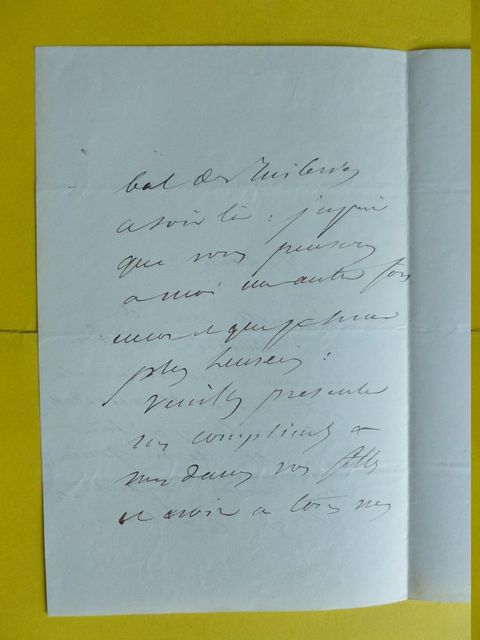 bal des Tuileries
ce soir là : j'espère
que vous penserez
a moi une autre fois
encore et que je serai
plus heureux :
veuillez presenter
mes compliments a
mes dames vos filles
et croire a tous mes